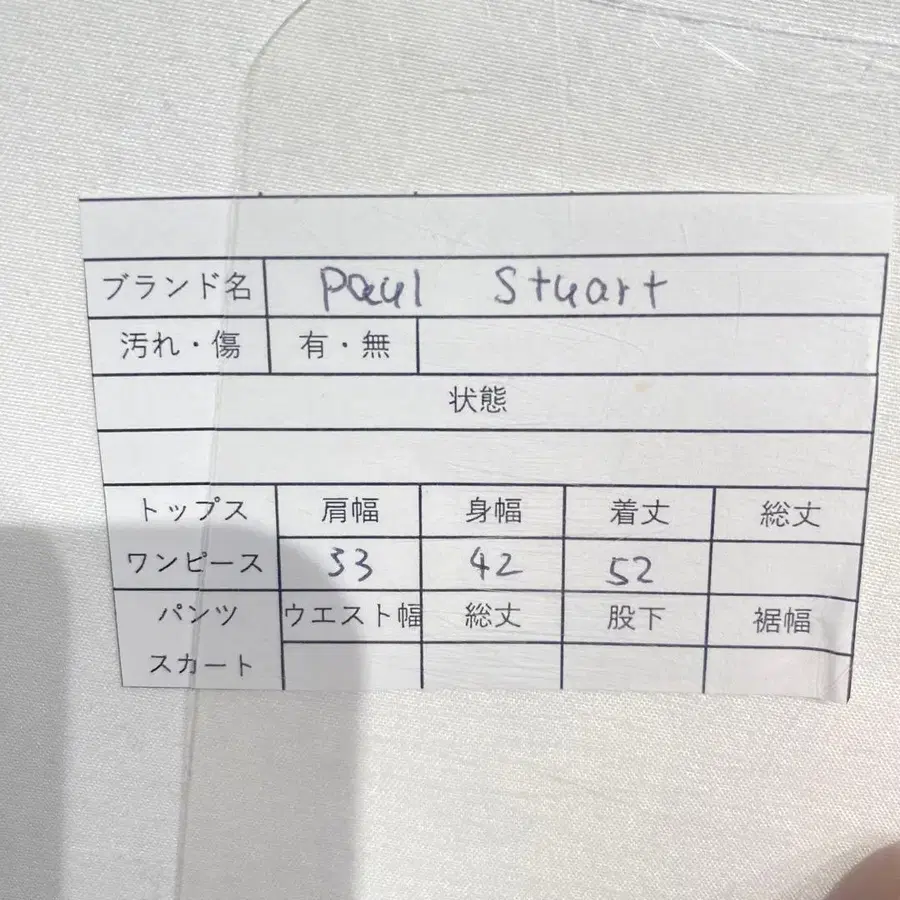 ブランド名 Paul Stuart
汚れ・傷 有・無
状態
トップス 肩幅 身幅 着丈 総丈
ワンピース 33 42 52
パンツ ウエスト幅 総丈 股下 裾幅
スカート